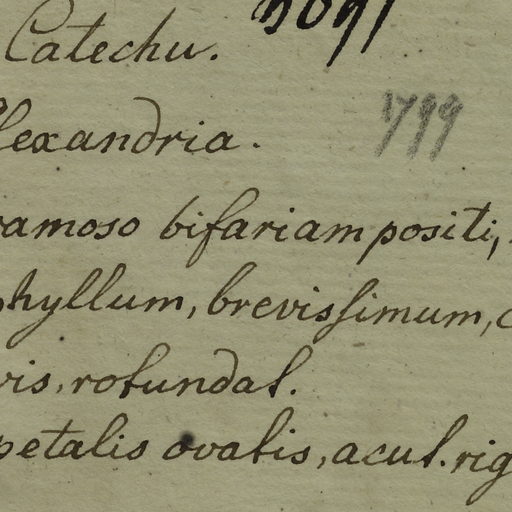 Catechu.
lexandria.
1799
ramoso bifariam positi,
hyllum, brevissimum, c
vis, rotundat.
petalis ovatis, acut. rig